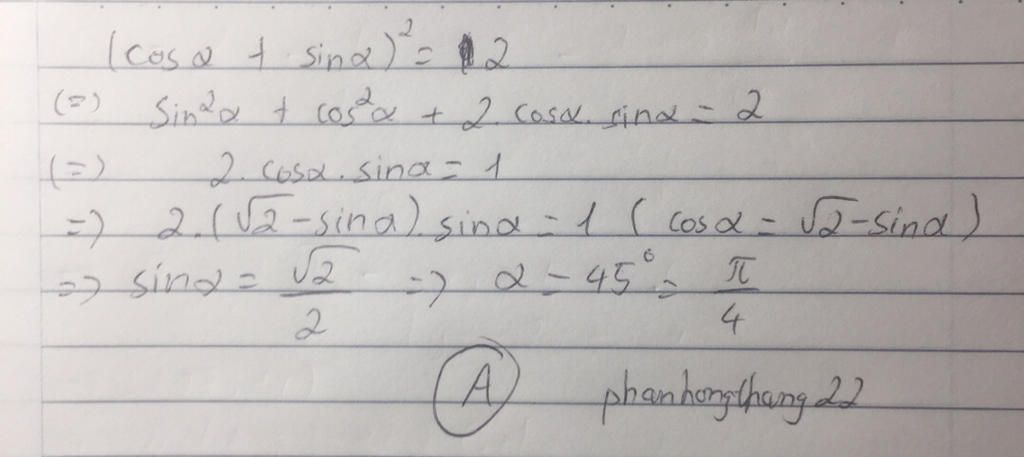 (cosα + sinα)² = 2
(=) Sin²α + cos²α + 2.cosα.sinα = 2
(=) 2.cosα.sinα = 1
=) 2.(√2-sinα).sinα = 1 (cosα = √2-Sinα)
=> sinα = √2/2 =) α = 45° = π/4
A phanhongthang22